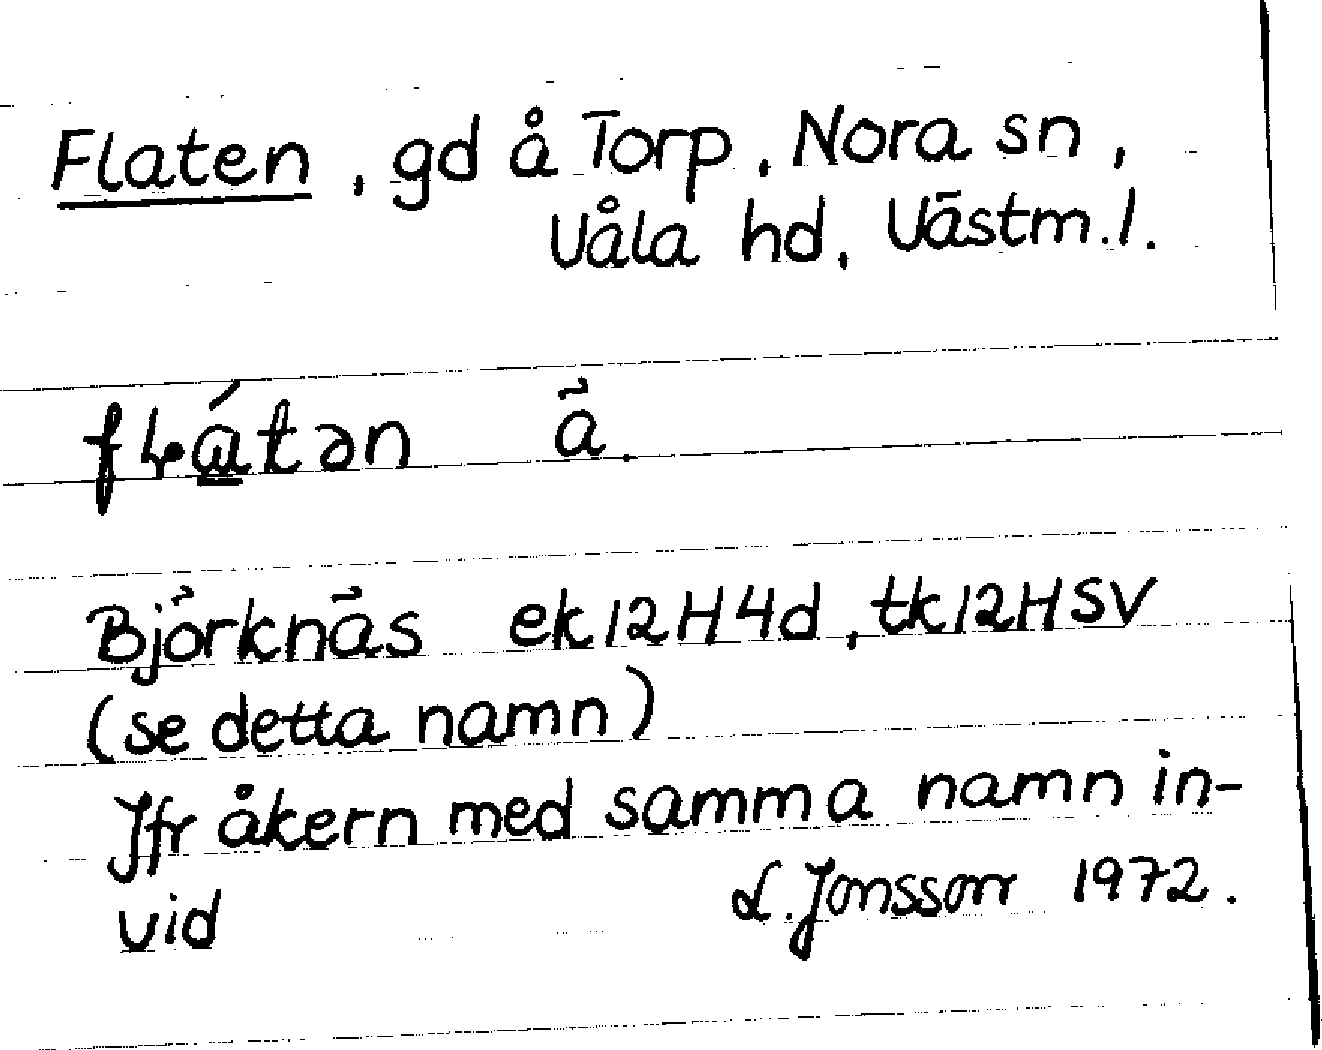 Flaten, gd å Torp, Nora sn,
Våla hd, Västm.l.
fɫátən ä.
Björknäs ek 12H4d, tk 12HSV
(se detta namn)
Jfr åkern med samma namn in-
vid L. Jonsson 1972.